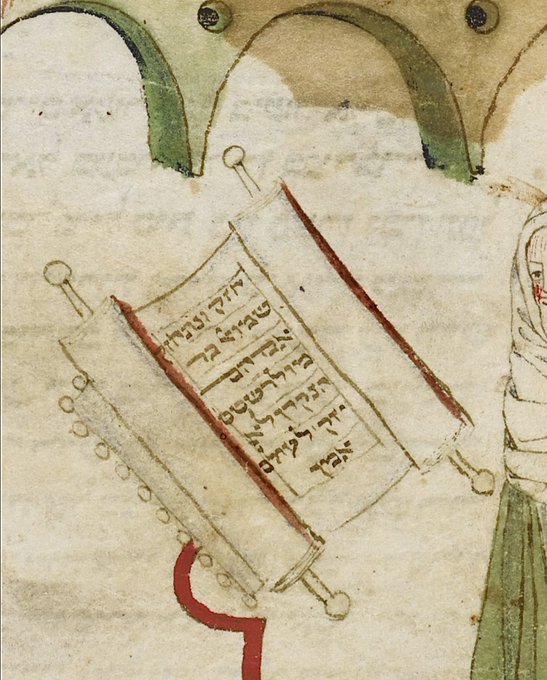 חזק ונתחזק
שמואל בר
אברהם
מולרשטט
הנקדן לא
יזק לעולם
אמן